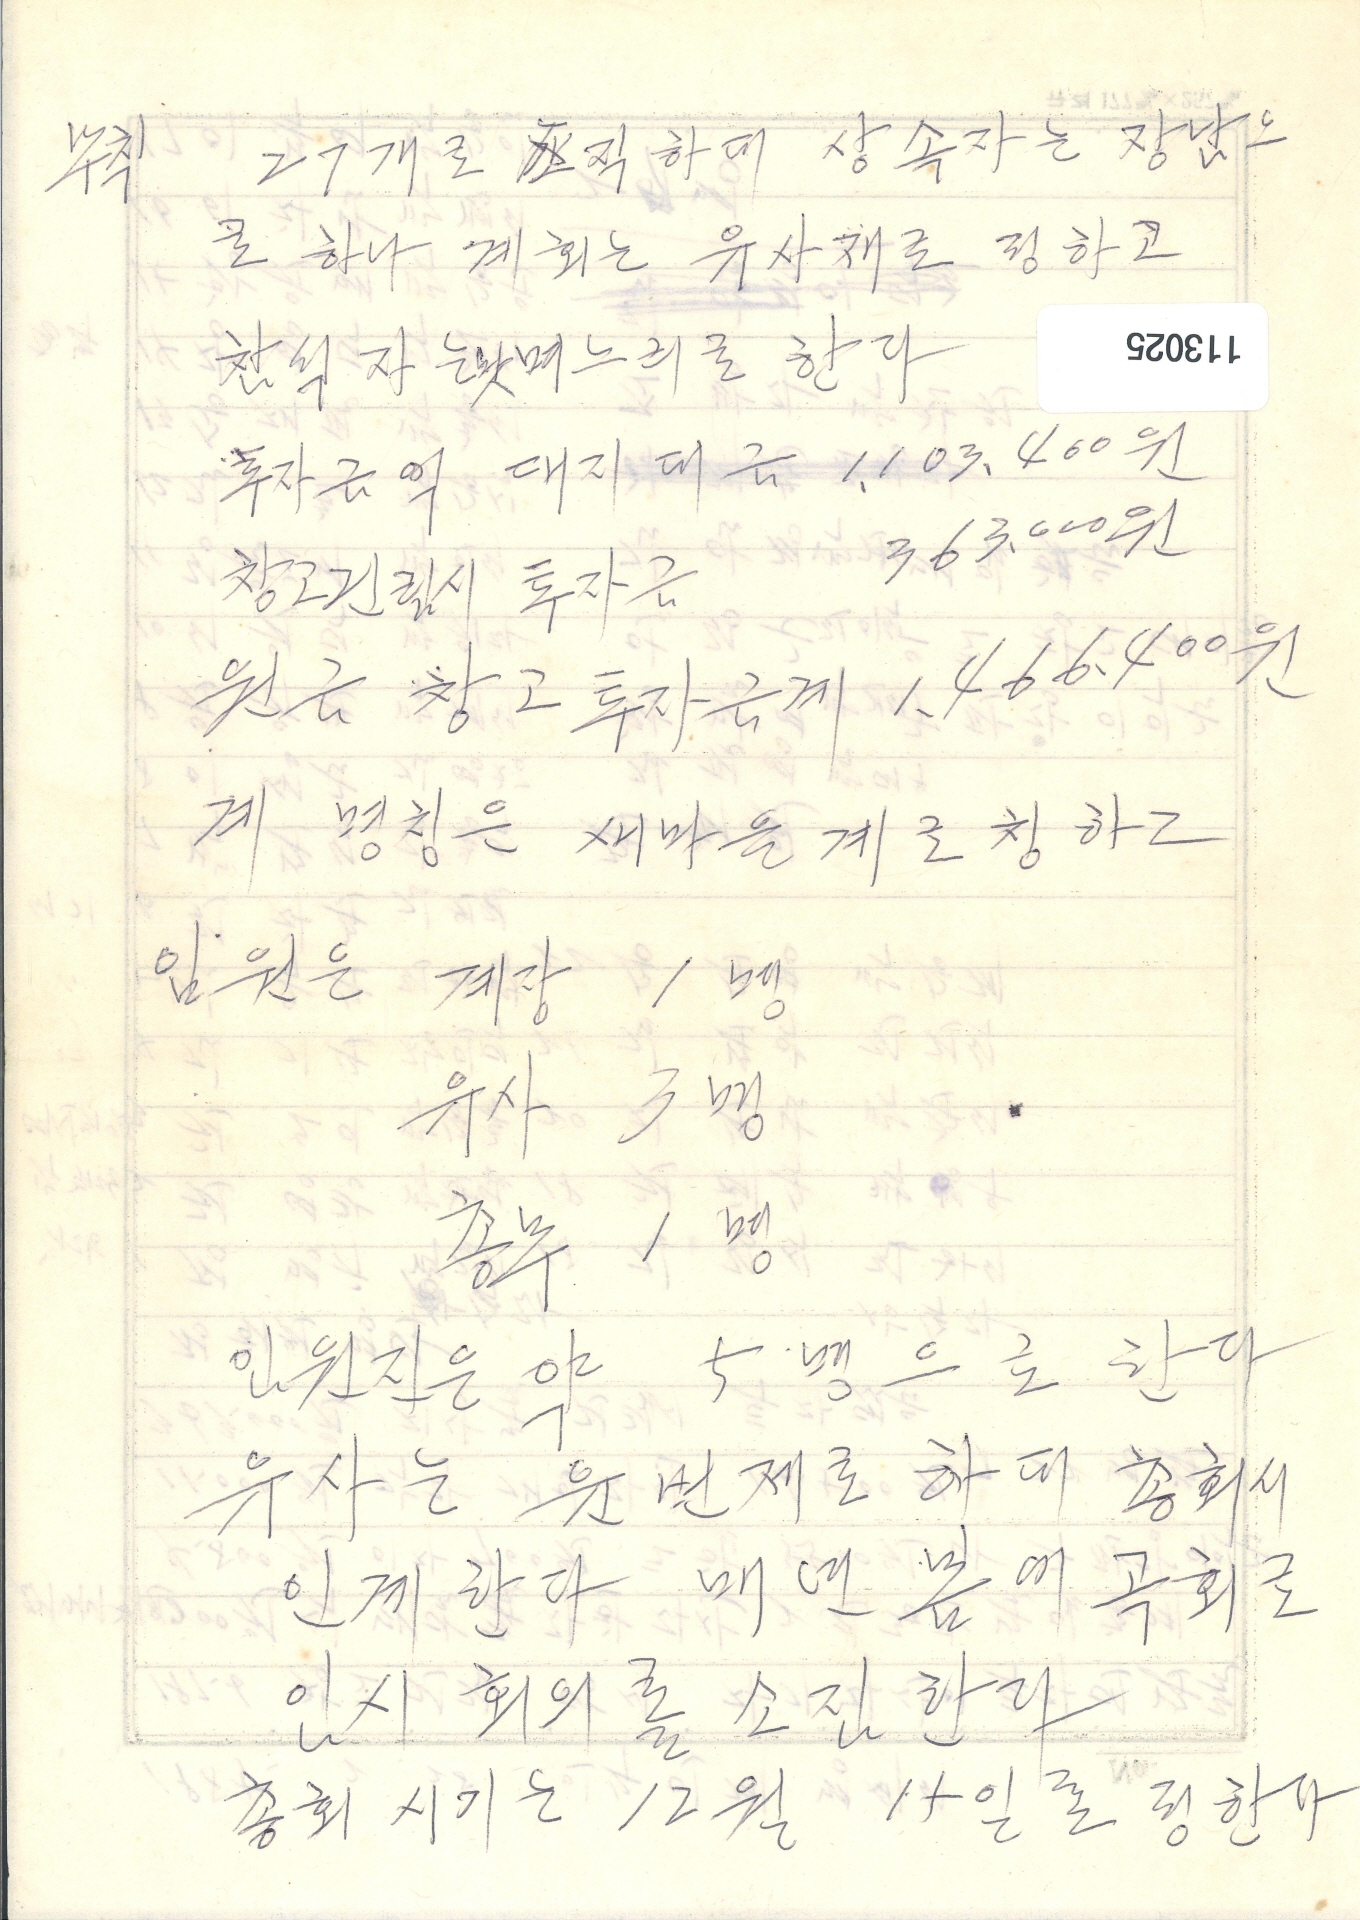 부칙 27개로 조직하대 상속자는 장남으
로 하나 계회는 유사채로 정하고
참석자는 맛며느리로 한다
113025
투자금액 대지대금 1,103.400원
창고건립시 투자금 363.000원
원금 창고투자금계 1.466.400원
계 명칭은 새마을계로칭하고
임원은 계장 1명
유사 3명
총무 1명
인원진은 약 5명으로 한다
유사는 윤번제로 하대 총회시
인계한다 매년 봄여곡회로
인시회의를 소집한다
총회시기는 12월 15일로 정한다